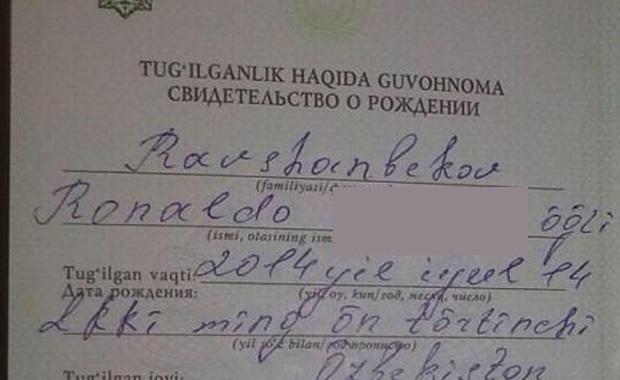 TUG‘ILGANLIK HAQIDA GUVOHNOMA
СВИДЕТЕЛЬСТВО О РОЖДЕНИИ
Ravshanbekov
(familiyasi/
Ronaldo ōģli
(ismi, otasining ism
Tug‘ilgan vaqti: 2014 yil iyul 14
Дата рождения: (yil, oy, kun/год, месяц, число)
Ikki ming ōn tōrtinchi
(yil so‘z bilan/год прописью)
Tug‘ilgan joyi: Ōzbekiston